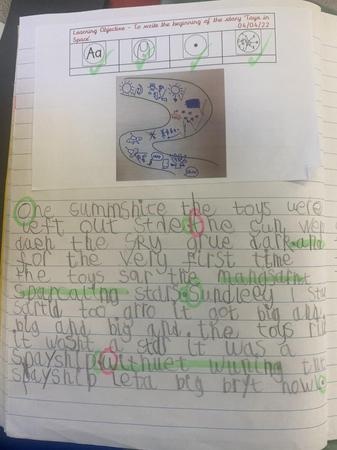 Learning Objective - To write the beginning of the story 'Toys in
Space'. 04/04/22
Aa
One summshire the toys were
left out stde the sun wen
daen the sky grue dark and
for the very first time
the toys sar the
Sparcaling stars Sundleey I sta
sartid too it got big and
big and big and. the toys
it wasnt a star it was a
spayship Withuet wuning the
spayship leta big bryt howl.